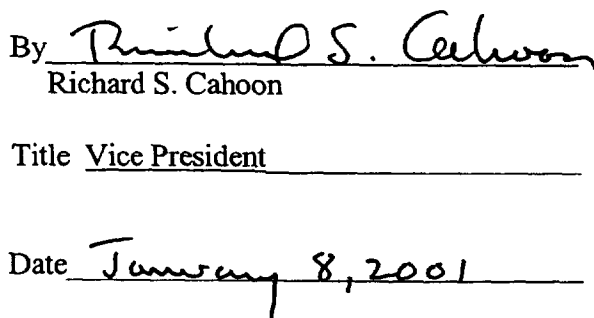 By Richard S. Cahoon
Richard S. Cahoon
Title Vice President
Date January 8, 2001